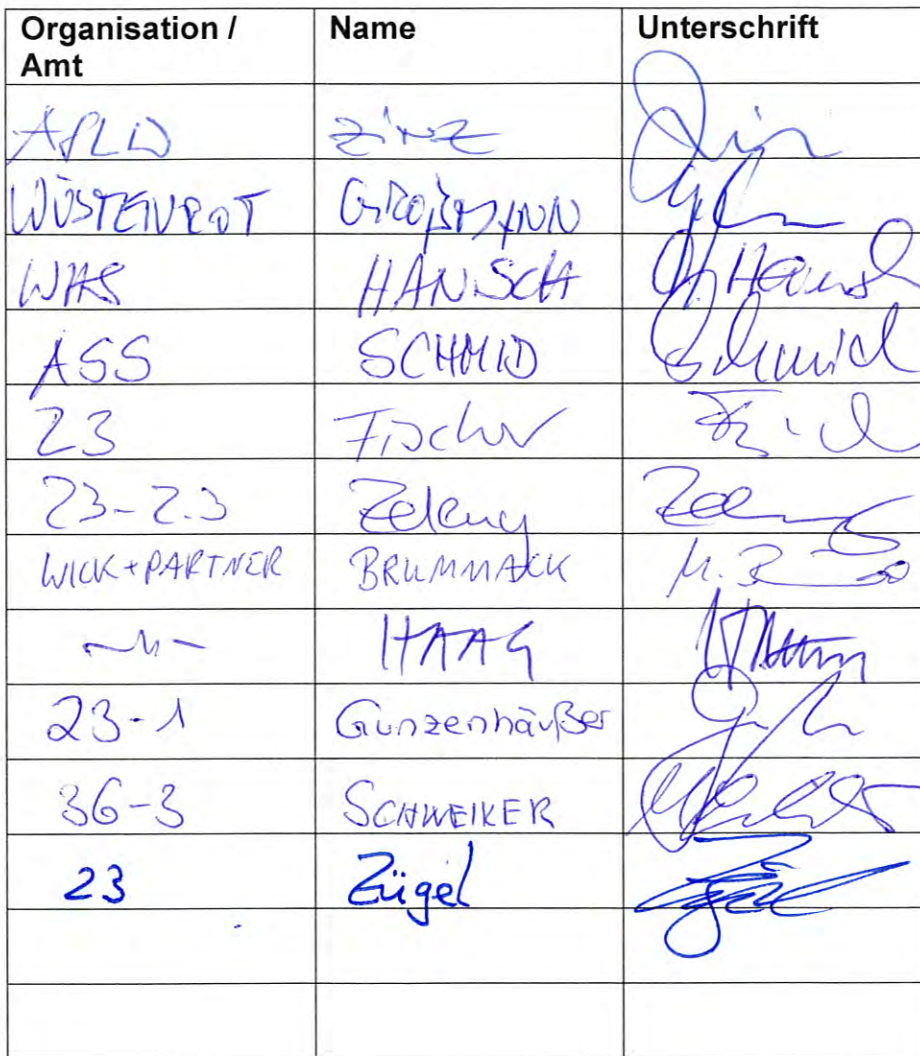 Organisation / Amt Name Unterschrift
Zinz
WÜSTENROT GROßMANN
WHS HANISCH
ASS SCHMID Schmid
23 Fischer
23-2.3 Zeleny
WICK+PARTNER BRUMMACK
-"- HAAG
23-1 Gunzenhäußer
36-3 SCHWEIKER
23 Zügel